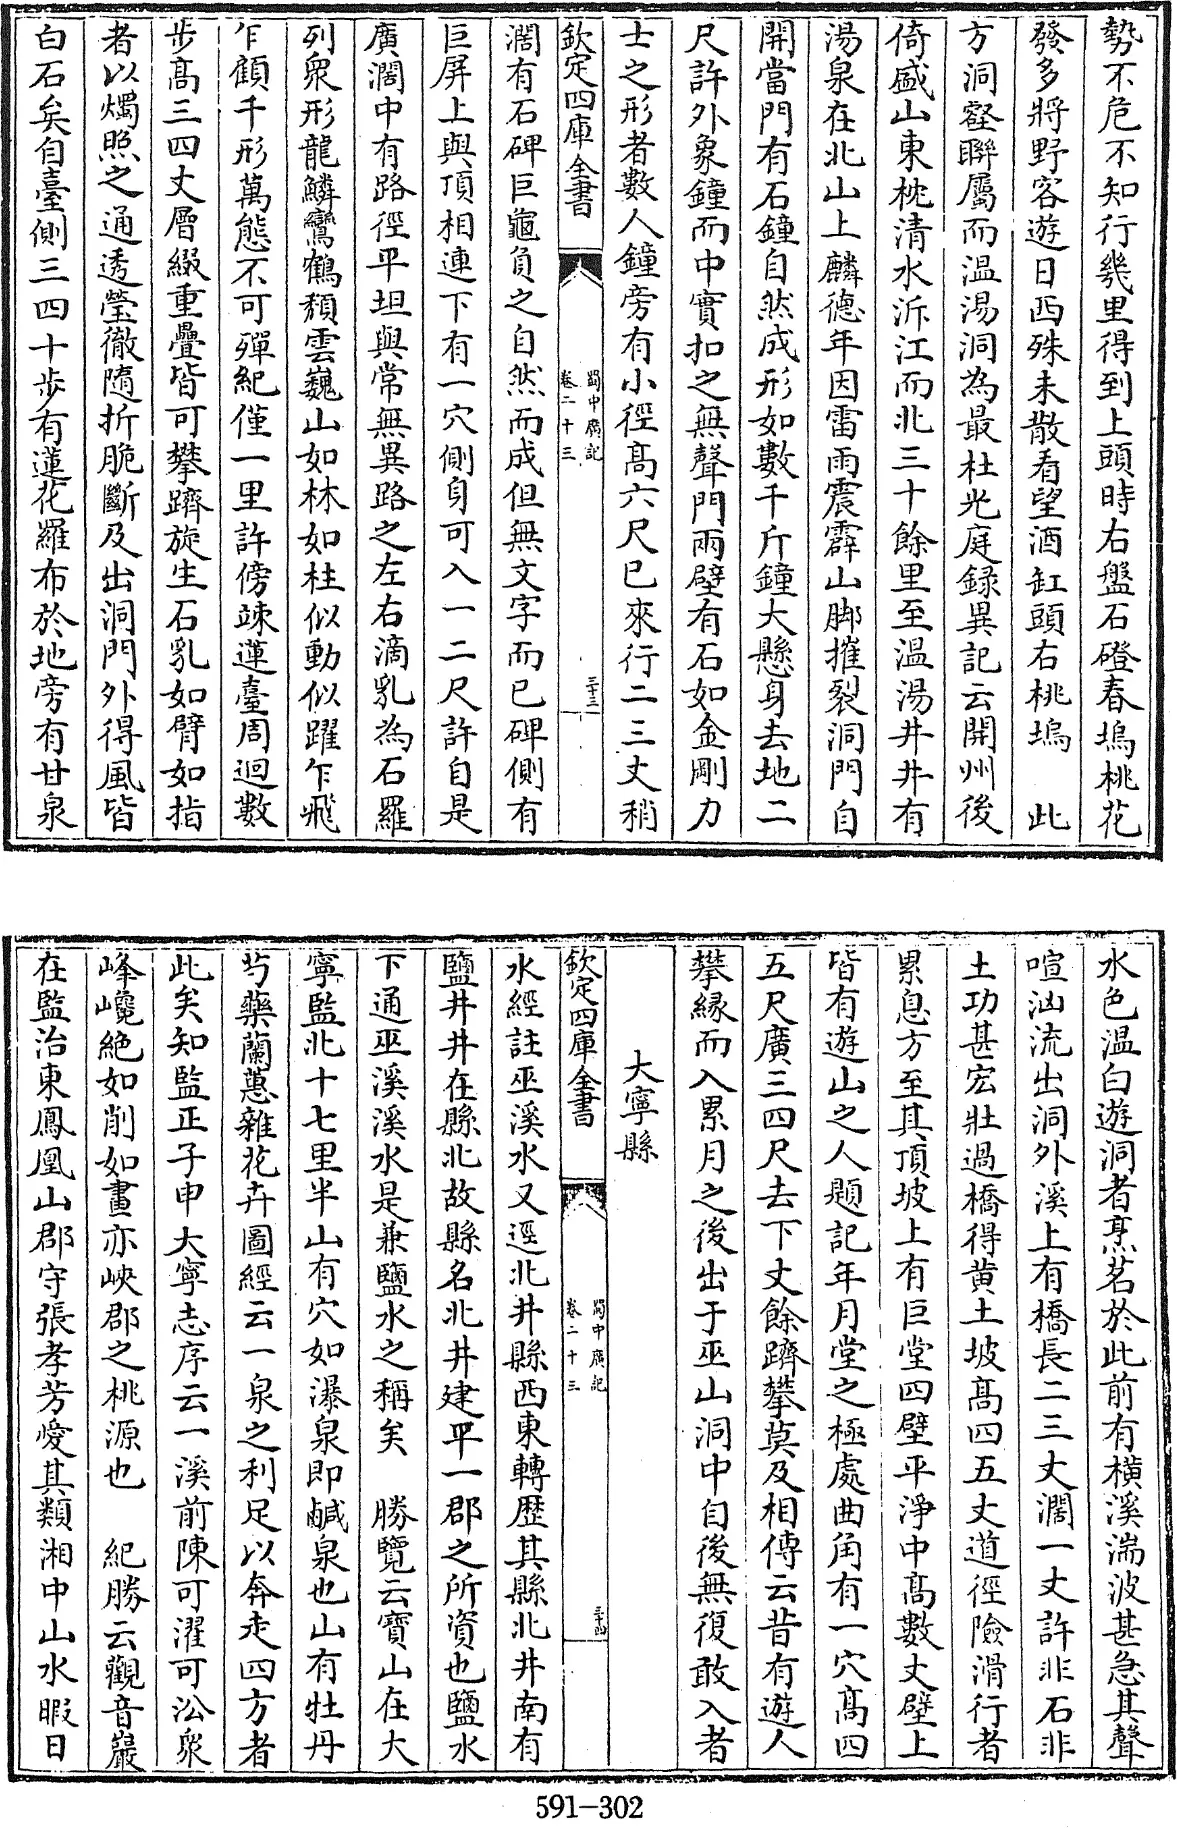 勢不危不知行幾里得到上頭時右盤石磴春塢桃花
發多將野客遊日西殊未散看望酒缸頭右桃塢　此
方洞壑聯屬而温湯洞為最杜光庭録異記云開州後
倚盛山東枕清水泝江而北三十餘里至温湯井井有
湯泉在北山上麟德年因雷雨震霹山脚摧裂洞門自
開當門有石鐘自然成形如數千斤鐘大懸身去地二
尺許外象鐘而中實扣之無聲門兩壁有石如金剛力
士之形者數人鐘旁有小徑髙六尺已來行二三丈稍
欽定四庫全書
蜀中廣記
卷二十三
三十三
濶有石碑巨龜負之自然而成但無文字而已碑側有
巨屏上與頂相連下有一穴側身可入一二尺許自是
廣濶中有路徑平坦與常無異路之左右滴乳為石羅
列衆形龍鱗鸞鶴頽雲巍山如林如柱似動似躍乍飛
乍顧千形萬態不可殫紀僅一里許傍竦蓮臺周迴數
步髙三四丈層綴重疊皆可攀躋旋生石乳如臂如指
者以燭照之通透瑩徹隨折脆斷及出洞門外得風皆
白石矣自臺側三四十歩有蓮花羅布於地旁有甘泉
水色温白遊洞者烹茗於此前有横溪湍波甚急其聲
喧汹流出洞外溪上有橋長二三丈濶一丈許非石非
土功甚宏壯過橋得黄土坡髙四五丈道徑險滑行者
累息方至其頂坡上有巨堂四壁平淨中髙數丈壁上
皆有遊山之人題記年月堂之極處曲角有一穴髙四
五尺廣三四尺去下丈餘躋攀莫及相傳云昔有遊人
攀縁而入累月之後出于巫山洞中自後無復敢入者
大寧縣
欽定四庫全書
蜀中廣記
卷二十三
三十四
水經註巫溪水又逕北井縣西東轉歴其縣北井南有
鹽井井在縣北故縣名北井建平一郡之所資也鹽水
下通巫溪溪水是兼鹽水之稱矣　勝覽云寳山在大
寧監北十七里半山有穴如瀑泉即鹹泉也山有牡丹
芍藥蘭蕙雜花卉圖經云一泉之利足以奔走四方者
此矣知監正子申大寧志序云一溪前陳可濯可㳂衆
峰巉絶如削如畫亦峽郡之桃源也　紀勝云觀音巖
在監治東鳳凰山郡守張孝芳愛其類湘中山水暇日
591-302